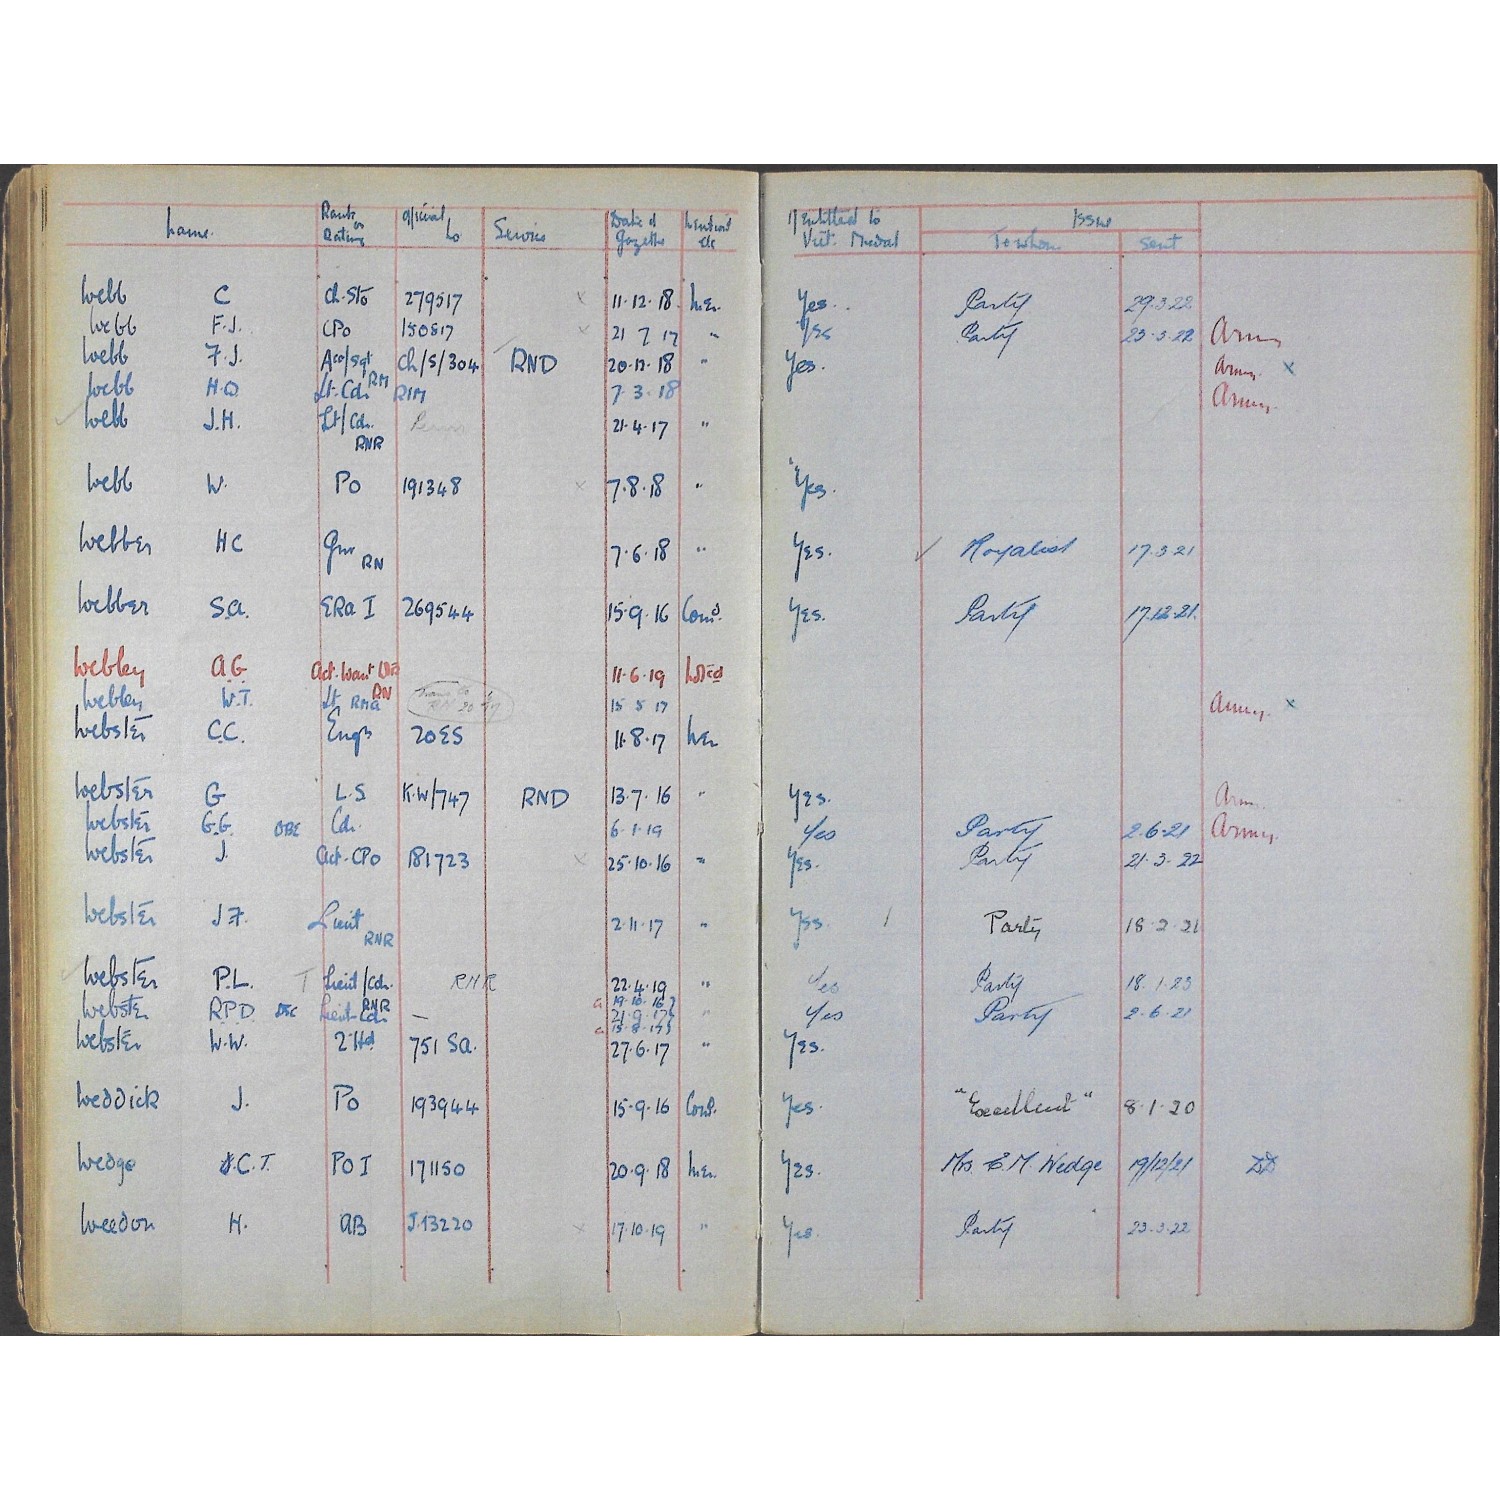 Name. Rank or Rating Official No Service Date of Gazette Mentioned etc If Entitled to Vict: Medal Issue
To whom Sent
Webb C Ch. Sto 279517 x 11.12.18 Men. Yes. Party 29.3.22
Webb F.J. CPO 150517 x 21 7 17 " Yes Party 23.3.22 Army
Webb F.J. Aco/Sgt RM Ch/S/304 RND 20.12.18 " Yes. Army. x
Webb H.D. Lt. Cdr RIM 7.3.18 Army.
Webb J.H. Lt/Cdr. RNR 21.4.17 "
Webb W. PO 191348 x 7.8.18 " Yes.
Webber HC Gnr RN 7.6.18 " Yes. ✓ Royalist 17.3.21
Webber S.A. ERA I 269544 15.9.16 Comd. Yes. Party 17.12.21.
Webley A.G. Act. Want RN 11.6.19 Noted
Webley W.T. Lt RMA 15 5 17 Army. x
Webster C.C. Engr 20ES 11.8.17 Men
Webster G L.S K.W/747 RND 13.7.16 " Yes. Army
Webster G.G. OBE Cdr. 6.1.19 Yes Party 2.6.21 Army.
Webster J. Act. CPO 181723 x 25.10.16 " Yes. Party 21.3.22
Webster J.F. Lieut RNR 2.11.17 " Yes. Party 18.2.21
Webster P.L. T Lieut/Cdr. RNR RNR 22.4.19 " Yes Party 18.1.23
Webster R.P.D. DSC Lieut-Cdr — a 19.10.16 21.9.17 a 15.8.17 " Yes Party 2.6.21
Webster W.W. 2 Hd 751 SA. 27.6.17 " Yes.
Weddick J. PO 193944 15.9.16 Comd. Yes. "Excellent" 8.1.20
Wedge J.C.T. PO I 171150 20.9.18 Men. Yes. Mrs. E.M. Wedge 19/12/21 DD
Weedon H. AB J.13220 x 17.10.19 " Yes. Party 23.3.22